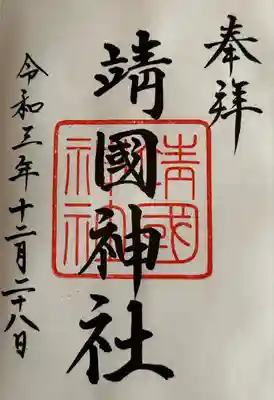 奉拝
靖國神社
靖國神社
令和三年十二月二十八日